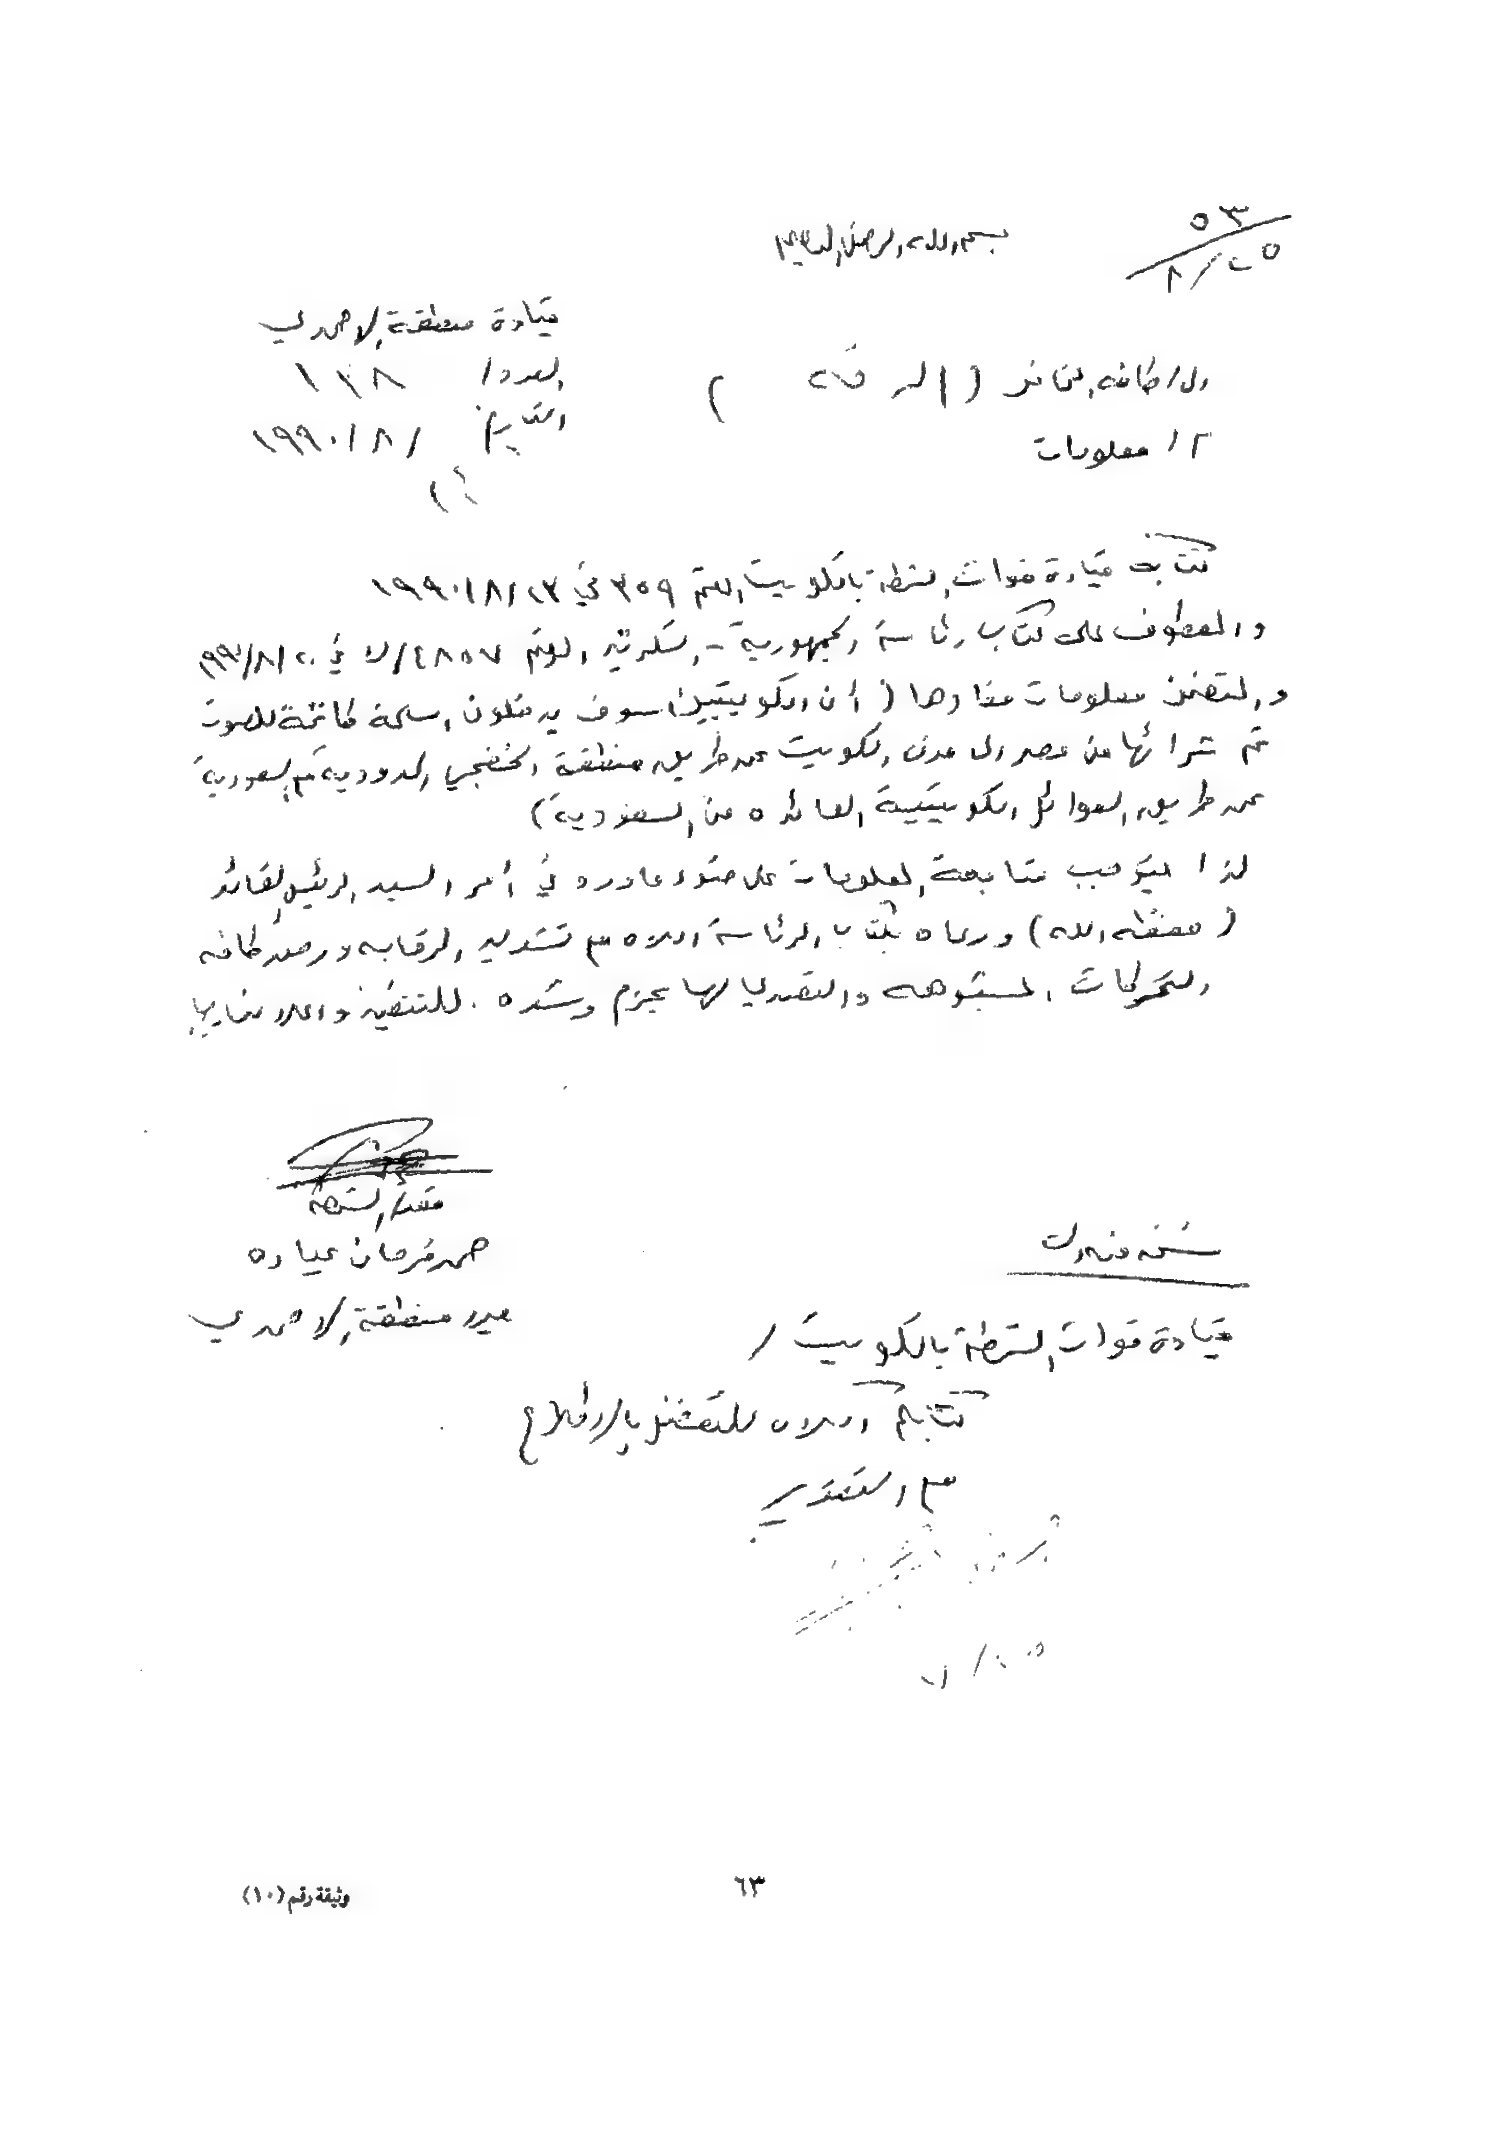 ٥٣
٨/٢٥
بسم الله الرحمن الرحيم
قيادة منطقة الاحمدي
الى/ كافة مخافر (الرقة)
العدد/ ١٣٨
التاريخ / ٨ / ١٩٩٠
م/ معلومات
كتاب قيادة قوات الشرطة بالكويت المرقم ٣٥٩ في ٢٣ / ٨ / ١٩٩٠
والمعطوف على كتاب رئاسة الجمهورية - السكرتير المرقم ٤٨٥٧/ك في ٢٠ / ٨ / ١٩٩٠
والمتضمن معلومات مفادها (أن الكويتيين سوف يدخلون اسلحة كاتمة للصوت
تم شرائها من مصر الى مدن الكويت عن طريق منطقة الخفجي الحدودية مع السعودية
عن طريق العوائل الكويتية العائده من السعودية)
لذا يتوجب متابعة المعلومات على ضوء ماورد في أمر السيد الرئيس القائد
(حفظه الله) ورعاه بكتاب الرئاسة اعلاه مع تشديد الرقابه ورصد كافه
التحركات المشبوهه والتصدي لها بحزم وشده . للتنفيذ واعلامنا
مقدم الشرطة
حمد فرحان عياده
مدير منطقة الاحمدي
نسخه منه الى
قيادة قوات الشرطة بالكويت /
كتابكم اعلاه للتفضل بالاطلاع
مع التقدير
٦٣
وثيقة رقم (١٠)